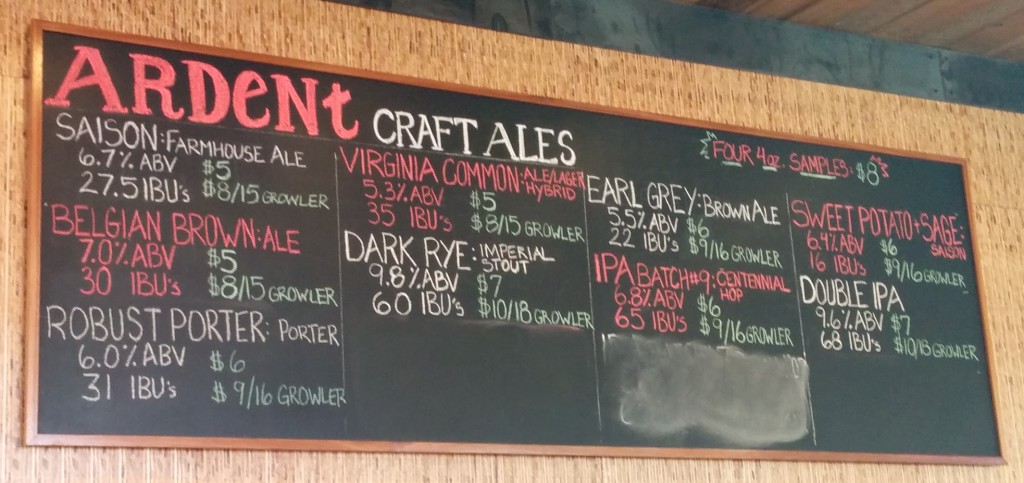 ARDENt CRAFT ALES
FOUR 4oz. SAMPLES: $8
SAISON: FARMHOUSE ALE
6.7% ABV $5
27.5 IBU's $8/15 GROWLER
BELGIAN BROWN: ALE
7.0% ABV $5
30 IBU's $8/15 GROWLER
ROBUST PORTER: PORTER
6.0% ABV $6
31 IBU's $9/16 GROWLER
VIRGINIA COMMON: ALE/LAGER HYBRID
5.3% ABV $5
35 IBU's $8/15 GROWLER
DARK RYE: IMPERIAL STOUT
9.8% ABV $7
60 IBU's $10/18 GROWLER
EARL GREY: BROWN ALE
5.5% ABV $6
22 IBU's $9/16 GROWLER
IPA BATCH #9: CENTENNIAL HOP
6.8% ABV $6
65 IBU's $9/16 GROWLER
SWEET POTATO + SAGE: SAISON
6.4% ABV $6
16 IBU's $9/16 GROWLER
DOUBLE IPA
9.6% ABV $7
68 IBU's $10/18 GROWLER